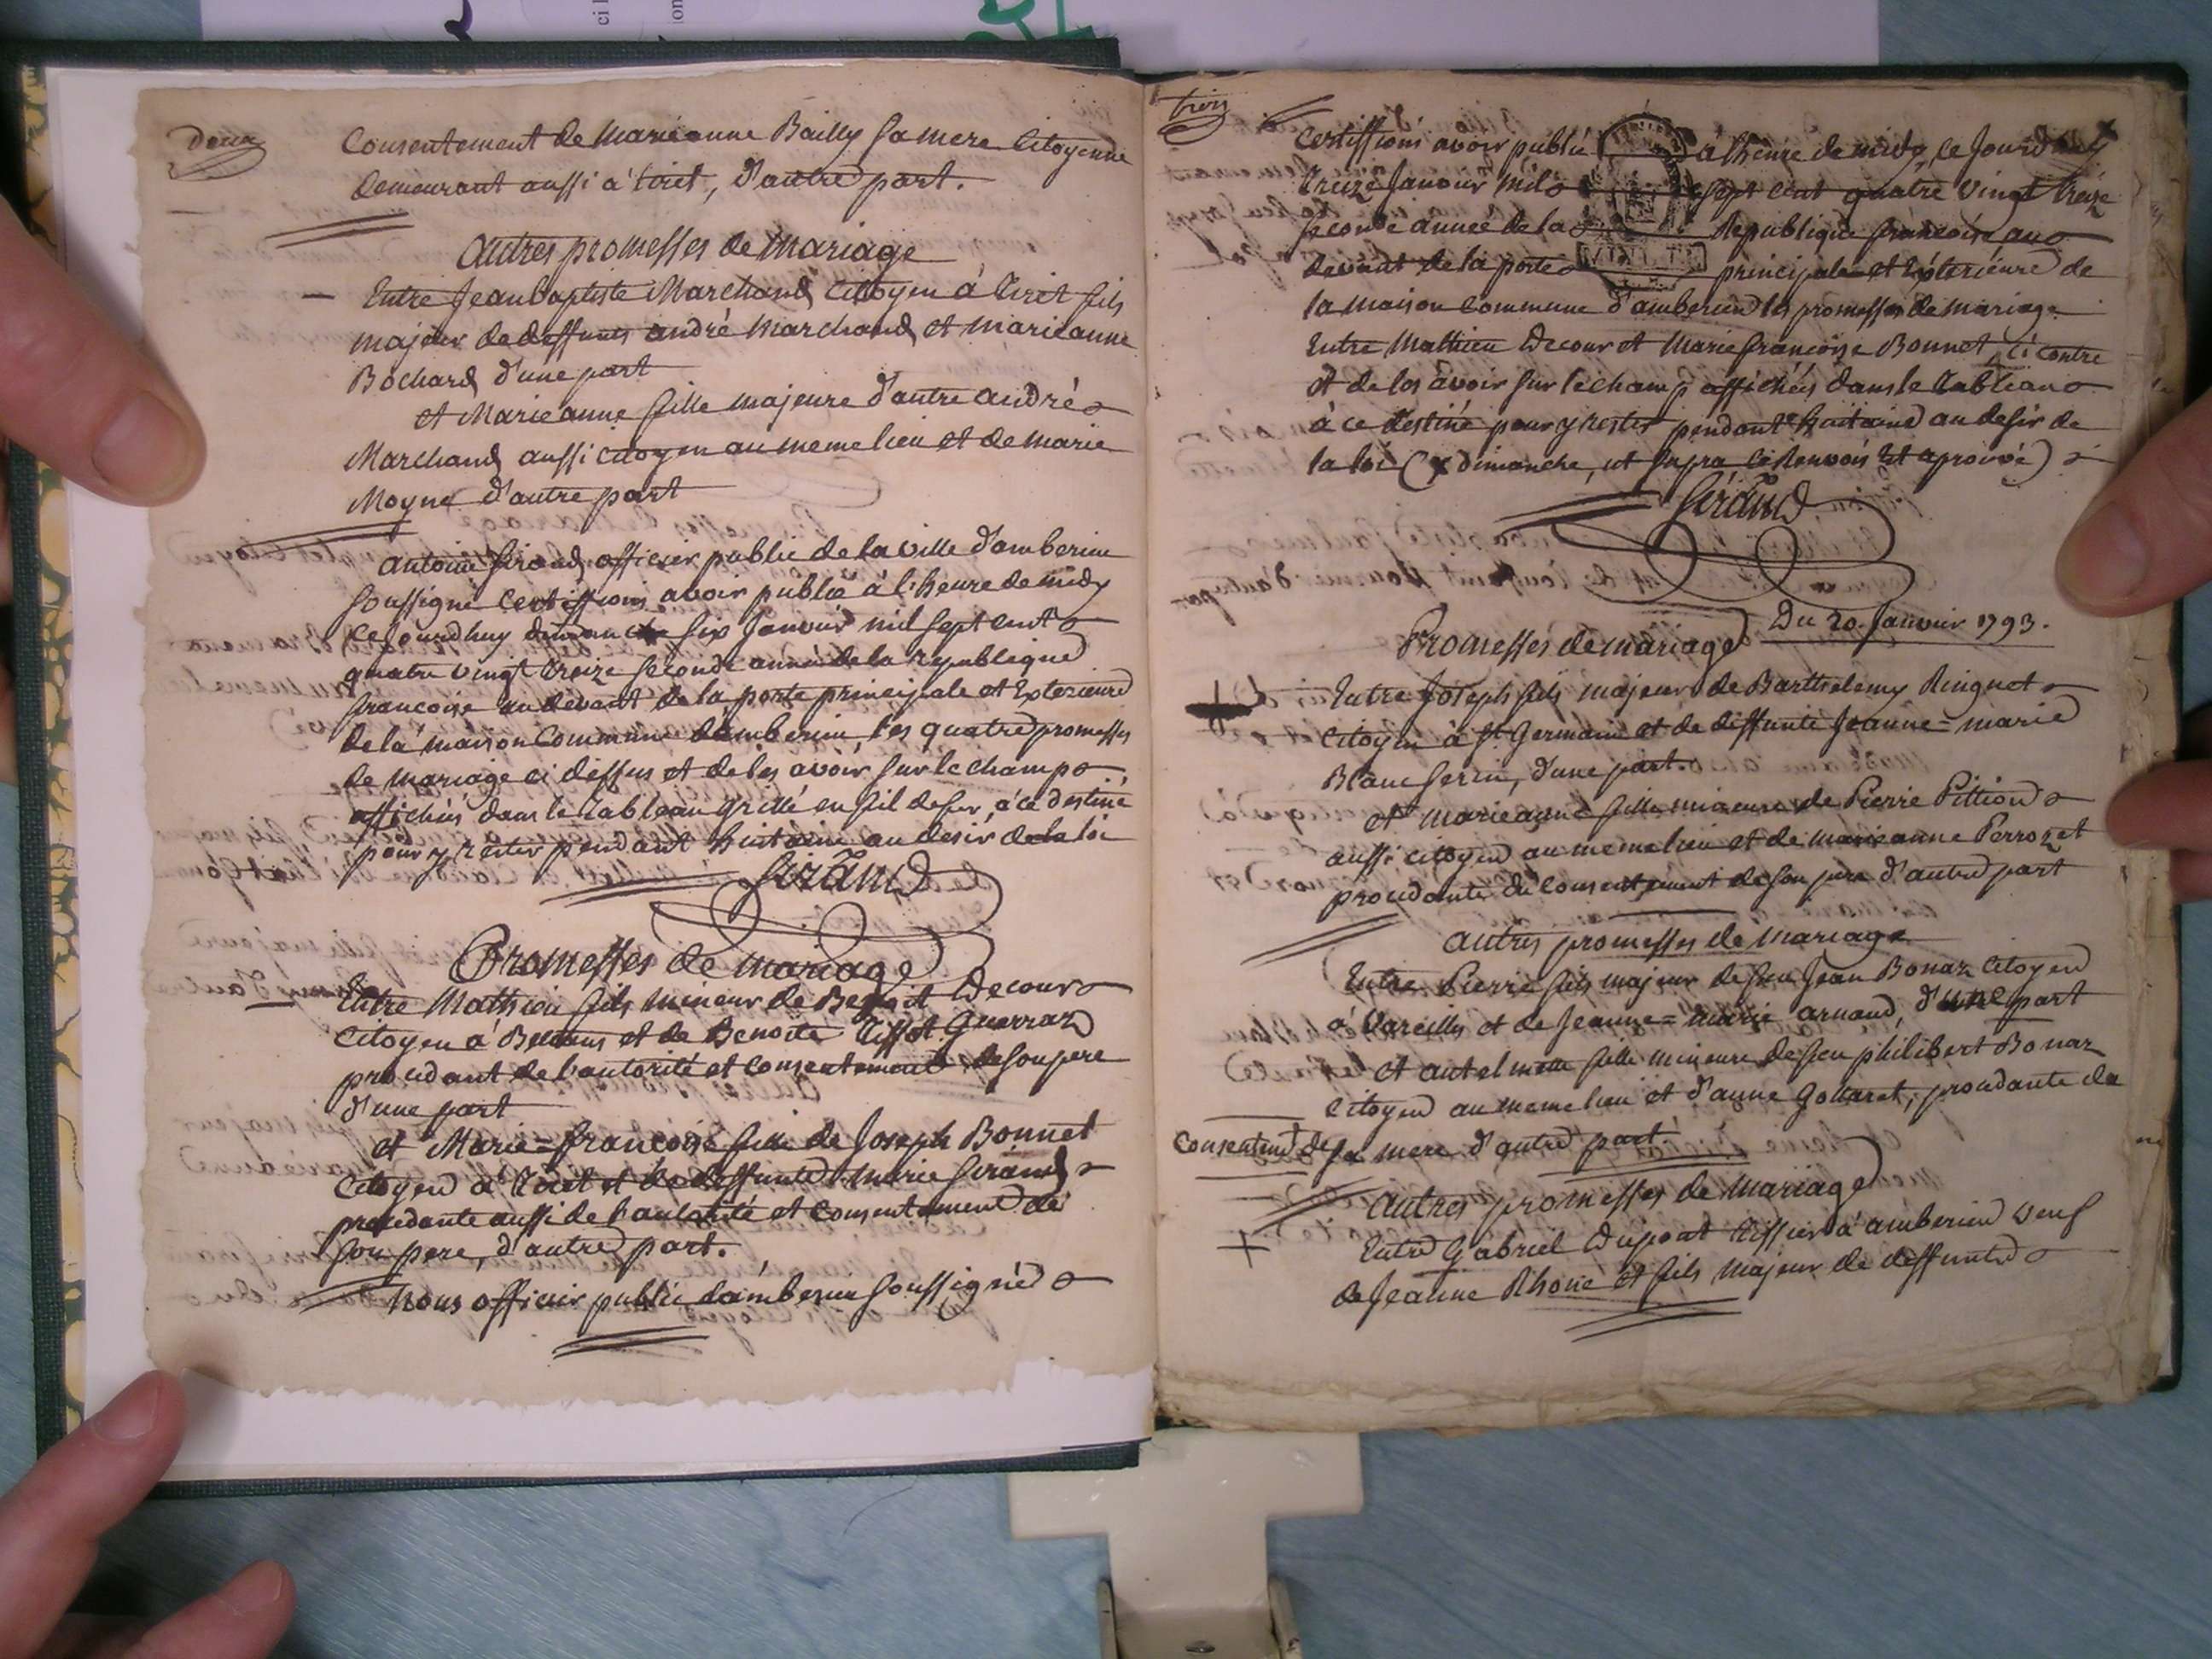 deux
Consentement de marieanne Bailly sa mere Citoyenne
demeurant aussi à tiret, d'autre part.
autres promesses de mariage
Entre Jean baptiste Marchand Citoyen à Tiret fils
majeur de deffunts andré Marchand et marieanne
Bochard d'une part
et Marieanne fille majeure d'autre andré
Marchand aussi citoyen au meme lieu et de marie
Moyne d'autre part
antoine Girand officier public de la ville d'amberieu
soussigné Certiffions avoir publié à l'heure de midy
ce Jourdhuy dimanche six Janvier mil sept cent
quatre vingt treize seconde année de la république
francoise au devant de la porte principale et Exterieure
de la maison Commune d'amberieu, les quatre promesses
de mariage ci dessus et de les avoir sur le champ
affichés dans le tableau grillé en fil de fer, à ce destiné
pour y rester pendant huitaine au desir de la loi
Girand
Promesses de mariage
Entre Mathieu fils mineur de Benoit Decour
Citoyen à et de Benoite Tissot Guerraz
procedant de l'autorité et consentement de son pere
d'une part
et Marie=francoise fille de Joseph Bonnet
Citoyen à Tiret et de deffunte marie Girand
procedante aussi de l'autorité et consentement de
son pere, d'autre part.
Nous officier public d'amberieu soussigné
trois
Certiffions avoir publié à l'heure de midy, ce Jourdhuy x
treize Janvier mil sept cent quatre vingt treize
seconde année de la Republique francoise au
devant de la porte principale et Exterieure de
la maison Commune d'amberieu les promesses de mariage
Entre Mathieu Decour et Marie francoise Bonnet, ci contre
et de les avoir sur le champ affichées dans le tableau
à ce destiné pour y rester pendant huitaine au desir de
la loi (x dimanche, ut supra ce renvois Est aprouvé)
Girand
Promesses de mariage Du 20. Janvier 1793.
Entre Joseph fils majeur de Barthelemy Ringuet
Citoyen à St. Germain et de deffunte Jeanne=marie
Blanc ferin, d'une part.
et marieanne fille mineure de Pierre Pittion
aussi citoyen au meme lieu et de marieanne Perrozet
procedante du consentement de son pere d'autre part
autres promesses de mariage
Entre Pierre fils majeur de feu Jean Bonaz Citoyen
à Vareilles et de Jeanne=marie arnaud, d'une part
et antelmette fille mineure de feu philibert Bonaz
Citoyen au meme lieu et d'anne Gottaret, procedante du
Consentemt de sa mere d'autre part.
autres promesses de mariage
Entre Gabriel Dupont tissier à amberieu veuf
de Jeanne Rhoné et fils majeur de deffunte